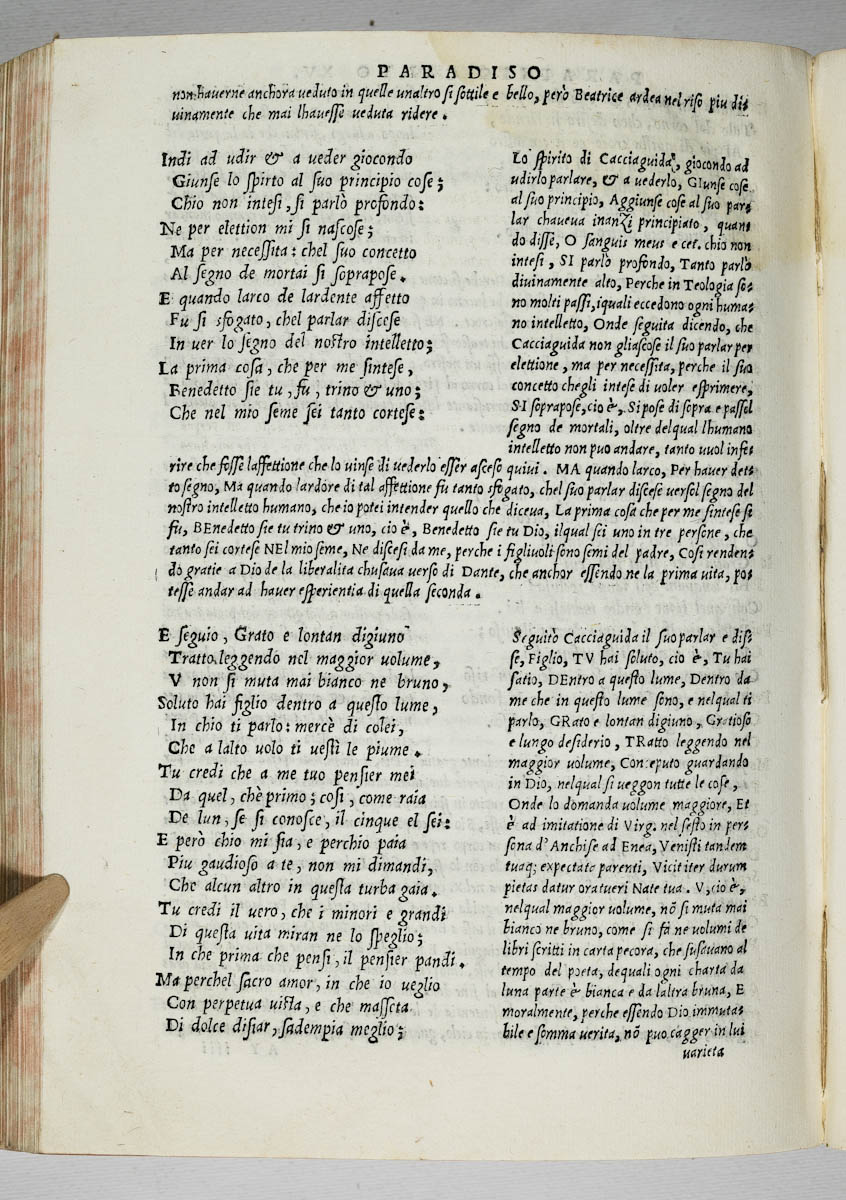 PARADISO
non hauerne anchora ueduto in quelle unaltro si sottile e bello, però Beatrice ardea nel riso piu di:
uinamente che mai lhauesse ueduta ridere.
Indi ad udir & a ueder giocondo
Giunse lo spirto al suo principio cose;
Chio non intesi, si parlò profondo:
Ne per elettion mi si nascose;
Ma per necessita: chel suo concetto
Al segno de mortai si soprapose.
E quando larco de lardente affetto
Fu si sfogato, chel parlar discese
In uer lo segno del nostro intelletto;
La prima cosa, che per me sintese,
Benedetto sie tu, fu, trino & uno;
Che nel mio seme sei tanto cortese:
Lo spirito di Cacciaguida, giocondo ad
udirlo parlare, & a uederlo, GIunse cose
al suo principio, Aggiunse cose al suo par:
lar chaueua inanzi principiato, quan:
do disse, O sanguis meus e cet. chio non
intesi, SI parlò profondo, Tanto parlò
diuinamente alto, Perche in Teologia so:
no molti passi, iquali eccedono ogni huma:
no intelletto, Onde seguita dicendo, che
Cacciaguida non gliascose il suo parlar per
elettione, ma per necessita, perche il suo
concetto chegli intese di uoler esprimere,
SI soprapose, cio è, Si pose di sopra e passol
segno de mortali, oltre delqual lhumano
intelletto non puo andare, tanto uuol infe:
rire che fosse laffettione che lo uinse di uederlo esser asceso quiui. MA quando larco, Per hauer det:
to segno, Ma quando lardore di tal affettione fu tanto sfogato, chel suo parlar discese uersol segno del
nostro intelletto humano, che io potei intender quello che diceua, La prima cosa che per me sintese si
fu, BEnedetto sie tu trino & uno, cio è, Benedetto sie tu Dio, ilqual sei uno in tre persone, che
tanto sei cortese NEl mio seme, Ne discesi da me, perche i figliuoli sono semi del padre, Cosi renden:
do gratie a Dio de la liberalita chusaua uerso di Dante, che anchor essendo ne la prima uita, po:
tesse andar ad hauer esperientia di quella seconda.
E seguio, Grato e lontan digiuno
Tratto leggendo nel maggior uolume,
V non si muta mai bianco ne bruno,
Soluto hai figlio dentro a questo lume,
In chio ti parlo: mercè di colei,
Che a lalto uolo ti uestì le piume.
Tu credi che a me tuo pensier mei
Da quel, chè primo; cosi, come raia
De lun, se si conosce, il cinque el sei:
E però chio mi sia, e perchio paia
Piu gaudioso a te, non mi dimandi,
Che alcun altro in questa turba gaia.
Tu credi il uero, che i minori e grandi
Di questa uita miran ne lo speglio;
In che prima che pensi, il pensier pandi.
Ma perchel sacro amor, in che io ueglio
Con perpetua uista, e che masseta
Di dolce disiar, sadempia meglio;
Seguitò Cacciaguida il suo parlar e dis:
se, Figlio, TV hai soluto, cio è, Tu hai
satio, DEntro a questo lume, Dentro da
me che in questo lume sono, e nelqual ti
parlo, GRato e lontan digiuno, Gratioso
e lungo desiderio, TRatto leggendo nel
maggior uolume, Conceputo guardando
in Dio, nelqual si ueggon tutte le cose,
Onde lo domanda uolume maggiore, Et
è ad imitatione di Virg. nel sesto in per:
sona d'Anchise ad Enea, Venisti tandem
tuaq; expectata parenti, Vicit iter durum
pietas datur ora tueri Nate tua. V, cio è,
nelqual maggior uolume, nõ si muta mai
bianco ne bruno, come si fa ne uolumi de
libri scritti in carta pecora, che susauano al
tempo del poeta, dequali ogni charta da
luna parte è bianca e da laltra bruna, E
moralmente, perche essendo Dio immuta:
bile e somma uerita, nõ puo cagger in lui
uarieta